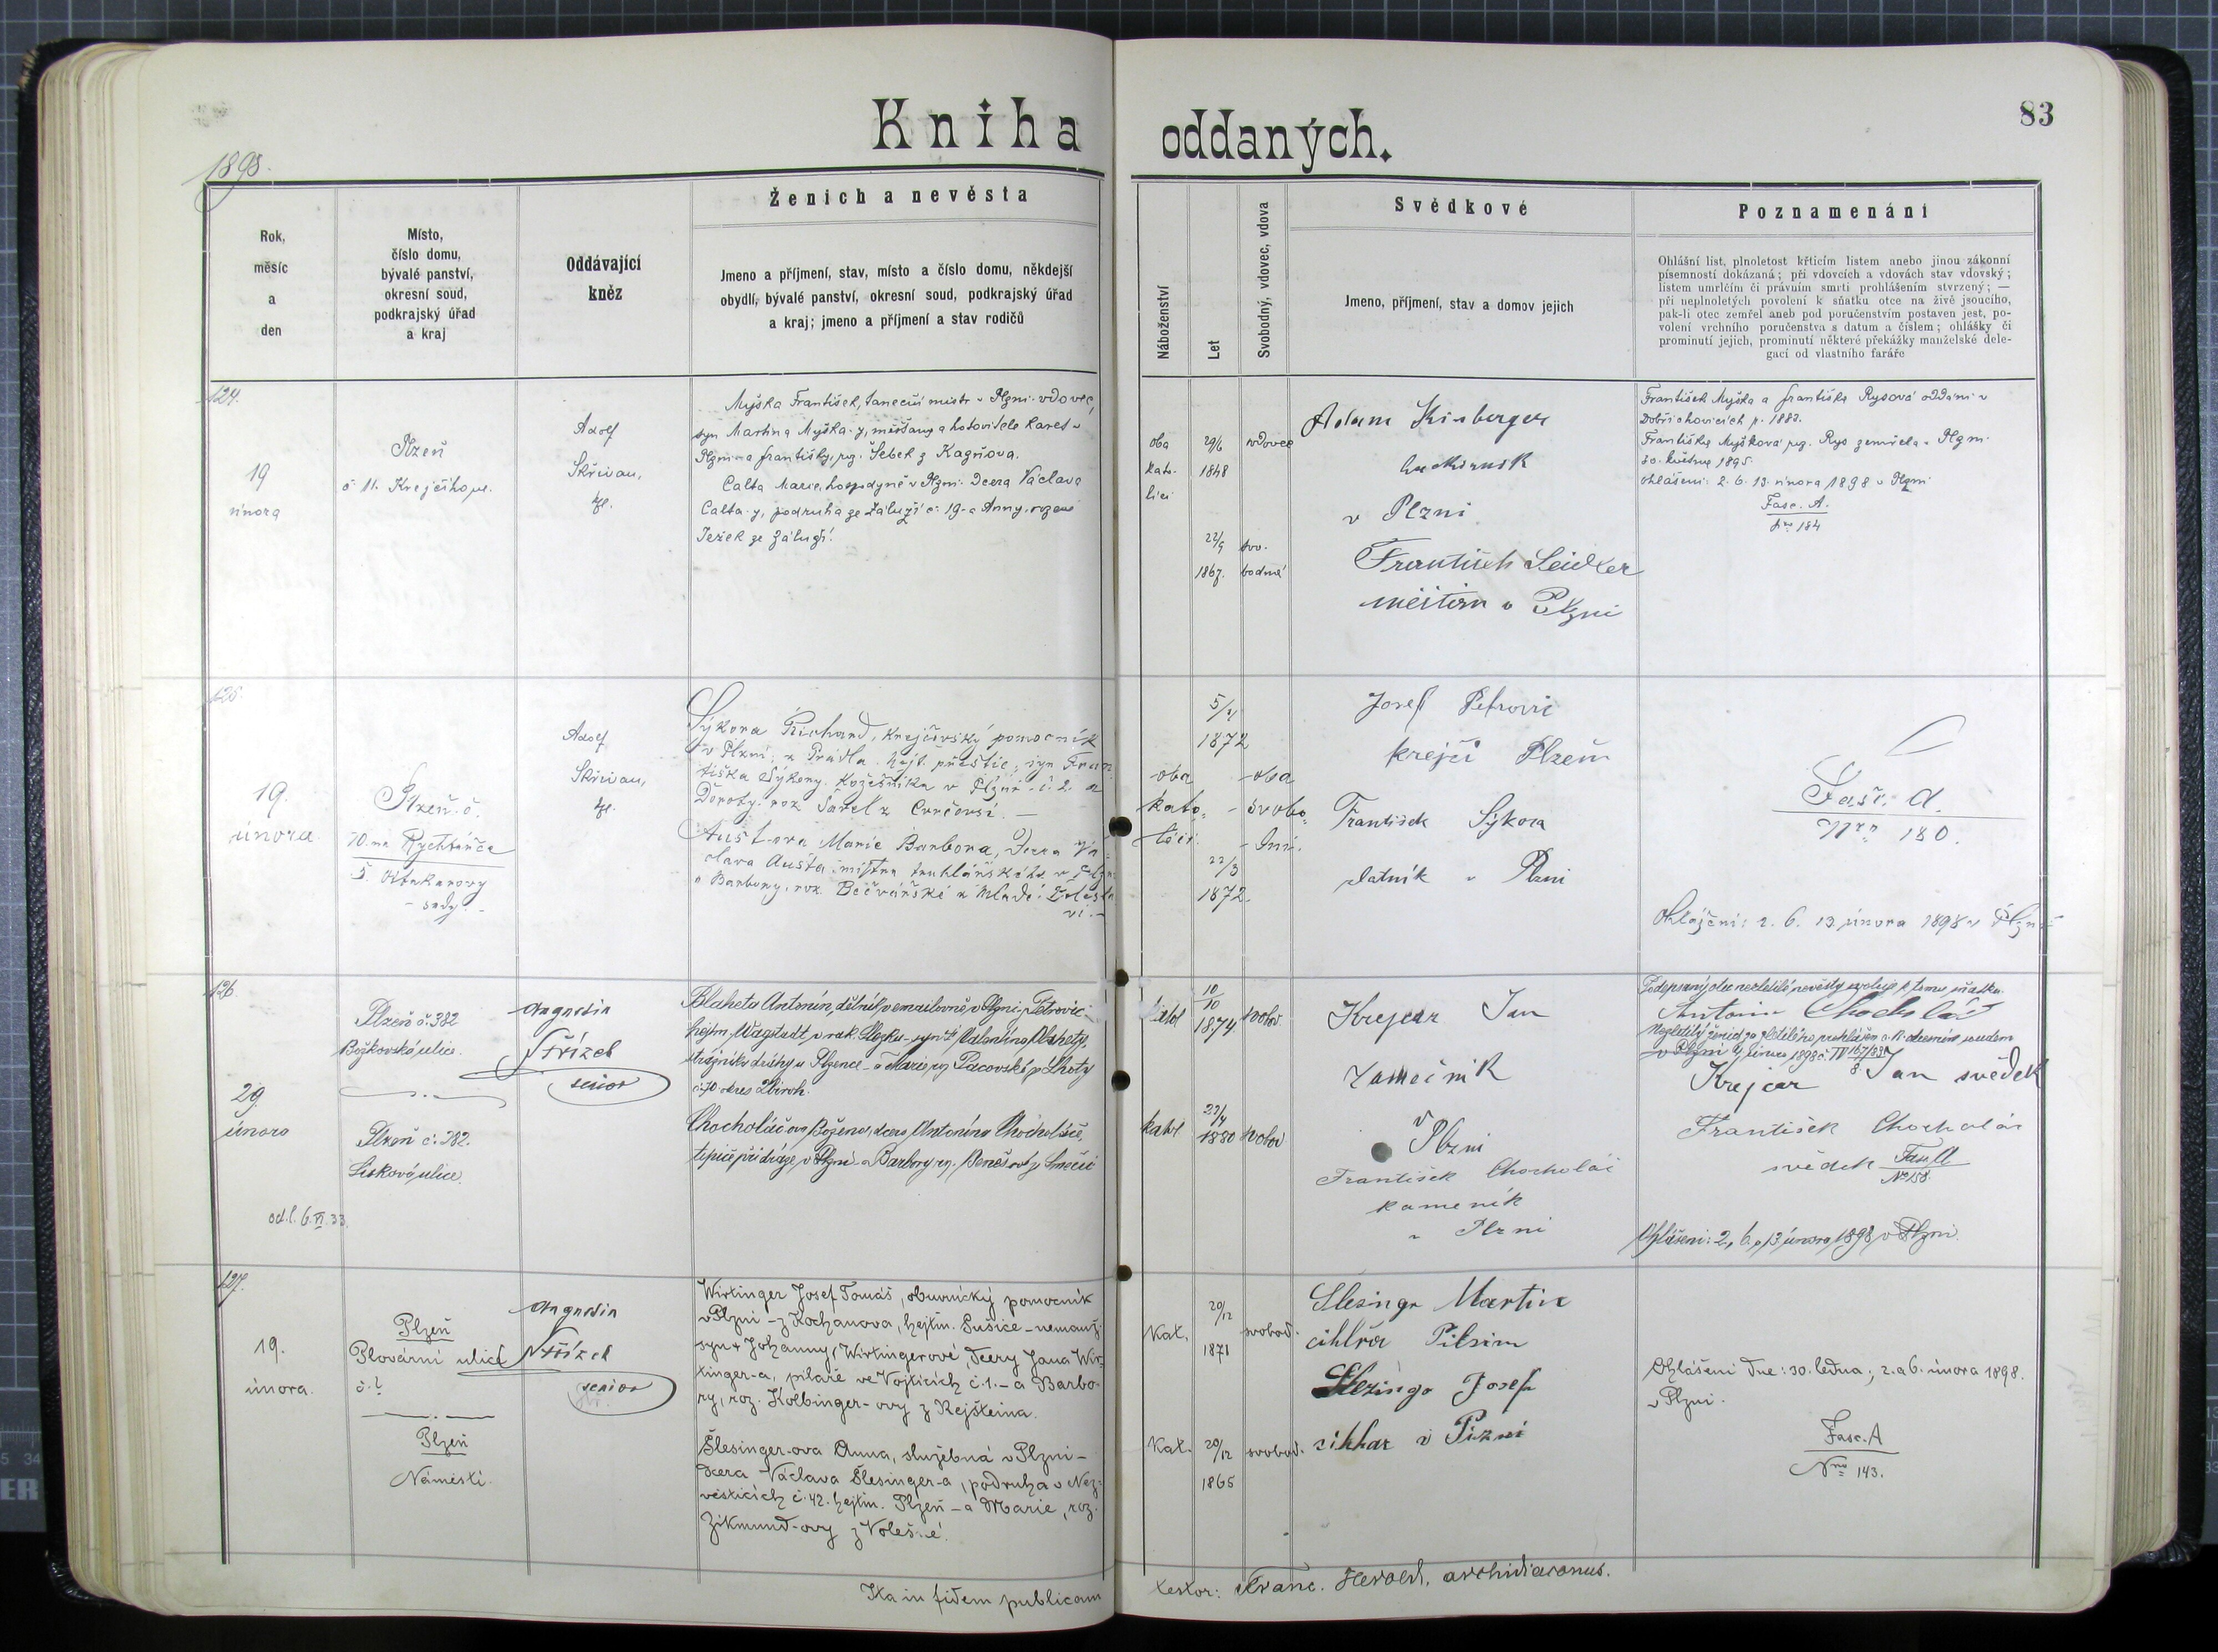 Kniha
oddaných.
83
1898.
Ženich a nevěsta
Rok,
měsíc
a
den
Místo,
číslo domu,
bývalé panství,
okresní soud,
podkrajský úřad
a kraj
Oddávající
kněz
Jmeno a příjmení, stav, místo a číslo domu, někdejší
obydlí, bývalé panství, okresní soud, podkrajský úřad
a kraj; jmeno a příjmení a stav rodičů
Náboženství
Let
Svobodný, vdovec, vdova
Svědkové
Jmeno, příjmení, stav a domov jejich
Poznamenání
Ohlášní list, plnoletost křticím listem anebo jinou zákonní
písemností dokázaná; při vdovcích a vdovách stav vdovský;
listem umrlčím či právním smrti prohlášením stvrzený; —
při neplnoletých povolení k sňatku otce na živě jsoucího,
pak-li otec zemřel aneb pod poručenstvím postaven jest, po-
volení vrchního poručenstva s datum a číslem; ohlášky či
prominutí jejich, prominutí některé překážky manželské dele-
gací od vlastního faráře
124.
19
února
Plzeň
č 11. Krejčího ul.
Adolf
Skřivan,
kpl.
Myška František, taneční mistr v Plzni. vdovec,
syn Martina Myška-y, měšťana a hotovitele karet v
Plzni - a Františky, roz. Šebek z Kaznova.
Calta Marie, hospodyně v Plzni. dcera Václava
Calta-y, podruha ze Záluží č. 19 - a Anny, rozené
Ježek ze Záluží.
oba
kato-
líci
29/6
1848
vdovec
22/9
1867.
svo-
bodná
Adam Kinberger
cukrář
v Plzni
František Seidler
měšťan v Plzni
František Myška a Františka Rysová oddáni v
Dobřichovicích r. 1882.
Františka Myšková roz. Rys zemřela v Plzni
30. května 1895.
Ohlášeni: 2. 6. 13. února 1898 v Plzni
Fasc. A.
Nro 184
125.
19.
února.
Plzeň č.
70. na Rychtářce
5. Otakarovy
- sady. -
Adolf
Skřivan,
kpl.
Sýkora Richard, krejčovský pomocník
v Plzni, z Prádla hejt. přeštic, syn Fran-
tiška Sýkory, kožešníka v Plzni č. 2. a
Doroty roz. Šařel z Čvrčovsi. —
Aust-ova Marie Barbora, Dcera Vá-
clava Austa, mistra truhlářského v Plzni
a Barbory, roz. Bečvářské z Mladé Bolesla-
vi. —
5/4
1872
oba
kato-
líci.
oba
svobo-
dní.
22/3
1872.
Josef Petrovic
krejčí Plzeň
František Sýkora
zlatník v Plzni
Fasc. A.
Nro 180.
Ohlášeni: 2. 6. 13 února 1898 v Plzni
126.
29.
února
od.l. 6.VI.33.
Plzeň č. 382
Božkovská ulice.
Plzeň č. 382.
Lískova ulice.
Augustin
Střízek
senior
Blaheta Antonín, dělník v emailovně v Plzni, z Petrovic
hejtm. Wagstadt v rak. Slezku - syn † Valentina Blahety,
strážníka dráhy u Plzence - a Marie, roz Pacovské z Lhoty
č. 70 okres Zbiroh.
Chocholáč-ova Božena, dcera Antonína Chocholáče,
topiče při dráze v Plzni - a Barbory, roz. Beneš-ové z Smečic
katol
10/10
1874
svobod
katol
22/4
1880
svobod
Krejcar Jan
zamečnik
v Plzni
František Chocholáč
kameník
v Plzni
Podepsaný otec nezletilé nevěsty svoluje k tomu sňatku.
Antonín Chocholáč
Nezletilý ženich za zletilého prohlášen c. k. okresním soudem
Krejcar Jan svědek
František Chocholáč
svědek
Fasc. A
No 158.
Ohlášeni: 2., 6. a 13. února 1898 v Plzni.
127.
19.
února.
Plzeň
Plovární ulice
č. ?
Plzeň
Náměstí.
Augustin
Střízek
senior
Wirtinger Josef Tomáš, obuvnický pomocník
v Plzni - z Kochanova, hejtm. Sušice - nemanž.
syn † Johanny, Wirtingerové, dcery Jana Wir-
tinger-a, pilaře ve Vojticích č. 1. - a Barbo-
ry, roz. Kolbinger-ovy z Rejšteina.
Šlesinger-ova Anna, služebná v Plzni -
dcera Václava Šlesinger-a, podruha v Nez-
věsticích č. 42. hejtm. Plzeň - a Marie, roz.
Zikmund-ovy z Volešné.
Kat.
20/12
1871
svobod.
Kat.
20/12
1865
svobod.
Slesingr Martin
cihlřa Pilsim
Slezingr Josef
cihlar v Plzni
Ohlášeni dne: 30. ledna; 2. a 6. února 1898.
v Plzni.
Fasc. A
Nro 143.
Ita in fidem publicam
testor: Franc. Herold, archidiaconus.